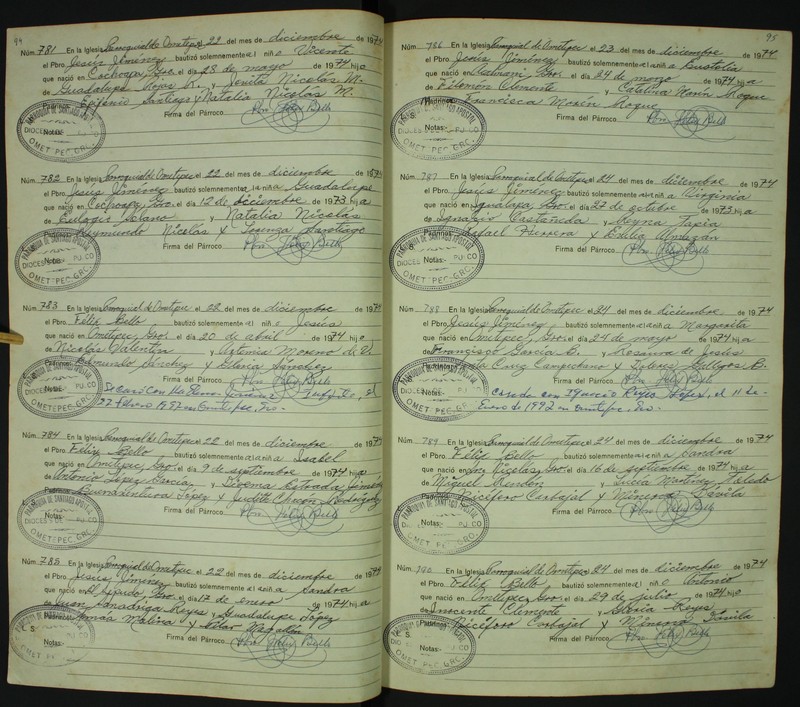 94
Núm. 781 En la Iglesia Parroquial de Ometepec el 22 del mes de diciembre de 1974
el Pbro. Jesús Jiménez bautizó solemnemente el niño Vicente
que nació en Cochoapa, Gro. el día 28 de mayo de 1974 hijo
de Guadalupe Rojas R. y Jovita Nicolás M.
Efrénio Santiago y Natalia Nicolás M.
Firma del Párroco Pbro. Félix Bello
PARROQUIA DE SANTIAGO APOSTOL
Notas:
OMETEPEC, GRO.
Núm. 782 En la Iglesia Parroquial de Ometepec el 22 del mes de diciembre de 1974
el Pbro. Jesús Jiménez bautizó solemnemente a la niña Guadalupe
que nació en Cochoapa, Gro. el día 12 de diciembre de 1973 hija
de Eulogio Solano y Natalia Nicolás
Raymundo Nicolás y Lorenza Santiago
Firma del Párroco Pbro. Félix Bello
PARROQUIA DE SANTIAGO APOSTOL
Notas:
OMETEPEC, GRO.
Núm. 783 En la Iglesia Parroquial de Ometepec el 22 del mes de diciembre de 1974
el Pbro. Félix Bello bautizó solemnemente el niño Jesús
que nació en Ometepec, Gro. el día 20 de abril de 1974 hijo
de Nicolás Valentino y Artemia Moreno de V.
Raimundo Sánchez y Gloria Sánchez
Firma del Párroco Pbro. Félix Bello
Notas: Se casó con Ma. el
27 febrero 1997 en Ometepec, Gro.
Núm. 784 En la Iglesia Parroquial de Ometepec 22 del mes de diciembre de 1974
el Pbro. Félix Bello bautizó solemnemente a la niña Isabel
que nació en Ometepec, Gro. el día 9 de septiembre de 1974 hija
de Antonio López García y Estrada Jiménez
Buenaventura López y Judith
Firma del Párroco Pbro. Félix Bello
PARROQUIA DE SANTIAGO APOSTOL
Notas:
OMETEPEC, GRO.
Núm. 785 En la Iglesia Parroquial de Ometepec el 22 del mes de diciembre de 1974
el Pbro. Jesús Jiménez bautizó solemnemente a la niña Sandra
que nació en Gro. el día 17 de enero de 1974 hija
de Juan Reyes y Guadalupe López
Tomás Molina y Pilar
Firma del Párroco Pbro. Félix Bello
Notas:
95
Núm. 786 En la Iglesia Parroquial de Ometepec el 23 del mes de diciembre de 1974
el Pbro. Jesús Jiménez bautizó solemnemente a la niña Eustolia
que nació en Gro. el día 24 de marzo de 1974 hija
de Filemón Clemente y Catalina Marín Roque
Madrina Francisca Morín Roque
Firma del Párroco Pbro. Félix Bello
Notas:
OMETEPEC, GRO.
Núm. 787 En la Iglesia Parroquial de Ometepec el 24 del mes de diciembre de 1974
el Pbro. Jesús Jiménez bautizó solemnemente a la niña Virginia
que nació en Igualapa, Gro. el día 22 de octubre de 1973 hija
de Ignacio Castañeda y Reyna Tapia
Rafael Herrera y Emilia
Firma del Párroco Pbro. Félix Bello
PARROQUIA DE SANTIAGO APOSTOL
Notas:
OMETEPEC, GRO.
Núm. 788 En la Iglesia Parroquial de Ometepec el 24 del mes de diciembre de 1974
el Pbro. Jesús Jiménez bautizó solemnemente a la niña Margarita
que nació en Ometepec, Gro. el día 24 de mayo de 1974 hija
de Francisco García B. y Rosalva de Jesús
Cruz Campuzano y Dolores Gallegos B.
Firma del Párroco Pbro. Félix Bello
Notas: Casada con Ignacio Reyes López, el 11 de
Enero de 1992 en Ometepec, Gro.
Núm. 789 En la Iglesia Parroquial de Ometepec 24 del mes de diciembre de 1974
el Pbro. Félix Bello bautizó solemnemente a la niña Sandra
que nació en Sn. Nicolás, Gro. el día 16 de septiembre de 1974 hija
de Miguel Rendón y Lucía Martínez Toledo
Nicéforo Carbajal y Minerva Dávila
Firma del Párroco Pbro. Félix Bello
PARROQUIA DE SANTIAGO APOSTOL
Notas:
OMETEPEC, GRO.
Núm. 790 En la Iglesia Parroquial de Ometepec 24 del mes de diciembre de 1974
el Pbro. Félix Bello bautizó solemnemente el niño Antonio
que nació en Ometepec, Gro. el día 29 de julio de 1974 hijo
de Inocente Clemente y Gloria Reyes
Nicéforo Carbajal y Minerva Dávila
Firma del Párroco Pbro. Félix Bello
Notas:
OMETEPEC, GRO.